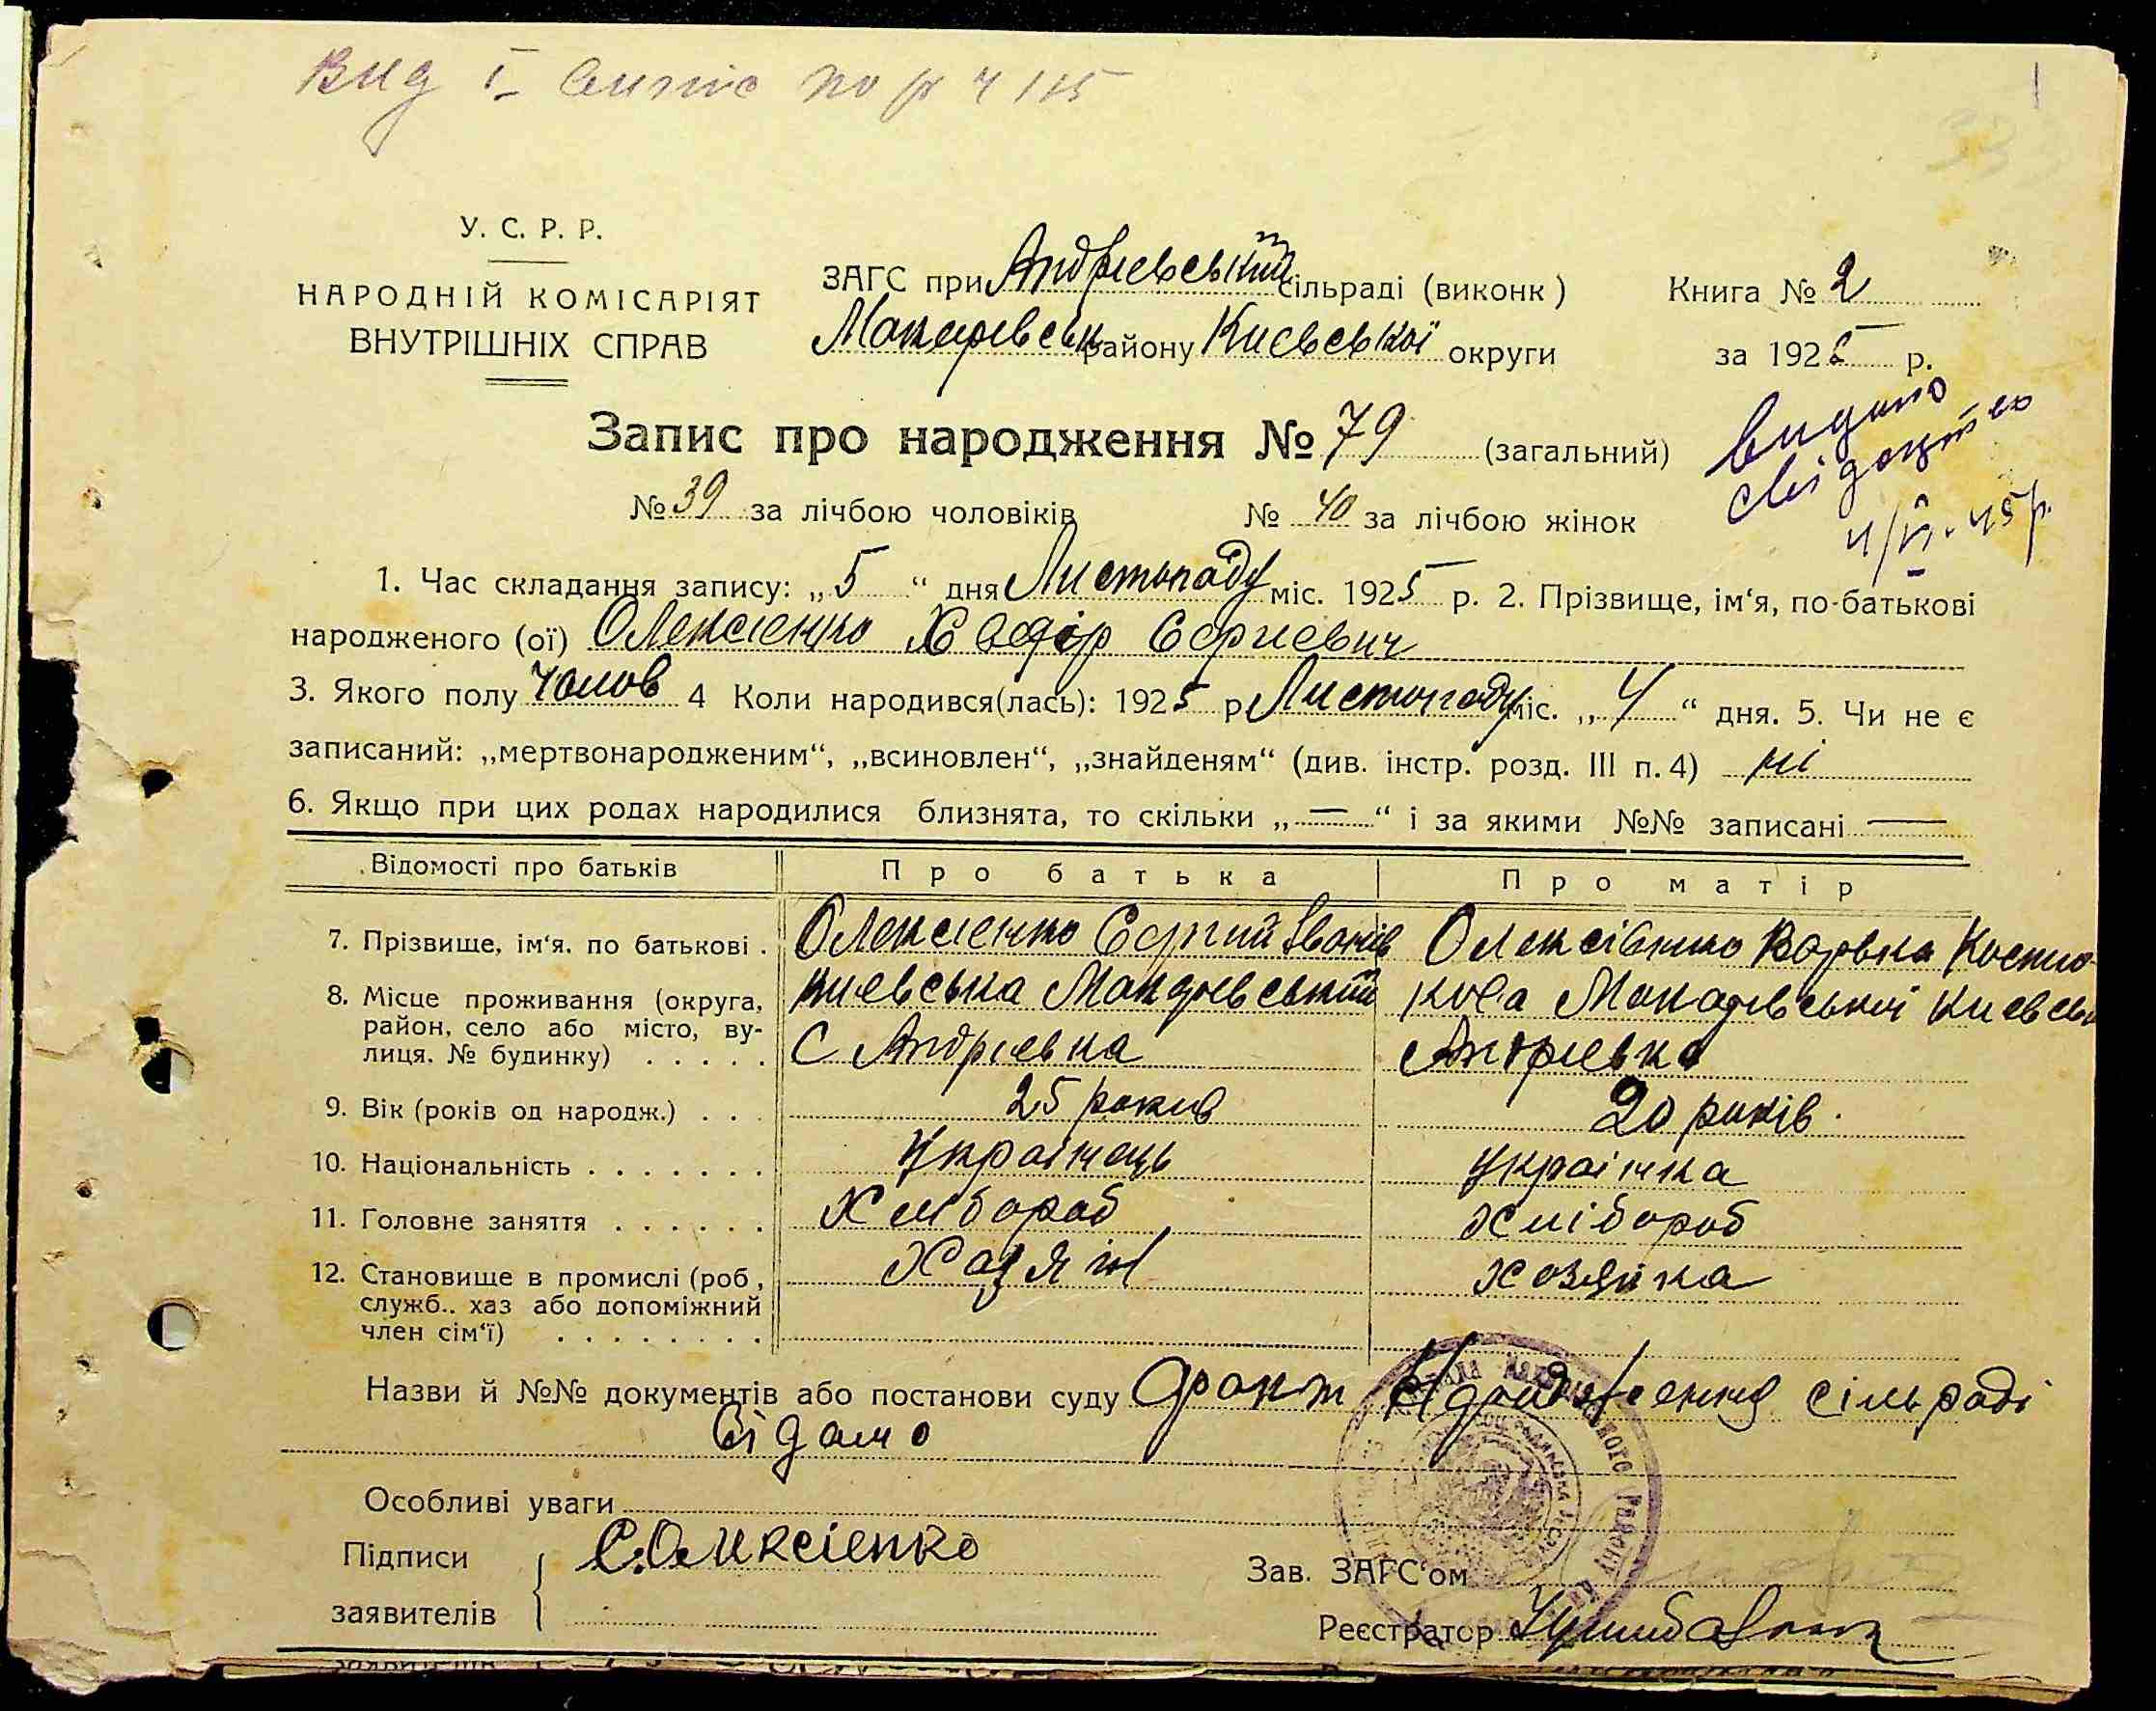 Вид
У. С. Р. Р.
НАРОДНІЙ КОМІСАРІЯТ
ВНУТРІШНІХ СПРАВ
ЗАГС при Андрієвський сільраді (виконк)
Макарівськ району Київської округи
Книга № 2
за 1925 р.
Запис про народження № 79 (загальний)
видано
свідоцтво
№ 39 за лічбою чоловіків № 40 за лічбою жінок
1. Час складання запису: „5“ дня Листопаду міс. 1925 р. 2. Прізвище, ім‘я, по-батькові
народженого (ої) Олексіенко
3. Якого полу Чолов 4 Коли народився(лась): 1925 р Листопаду міс. „4“ дня. 5. Чи не є
записаний: „мертвонародженим“, „всиновлен“, „знайденям“ (див. інстр. розд. III п. 4) ні
6. Якщо при цих родах народилися близнята, то скільки „—“ і за якими №№ записані —
Відомості про батьків Про батька Про матір
7. Прізвище, ім‘я. по батькові . Олексіенко Іванів Олексієнко Варька
8. Місце проживання (округа, район, село або місто, ву-лиця. № будинку) . . . . . Киевська Макарівський С Андрієвка Макарівської Киевськ Андрієвка
9. Вік (років од народж.) . . . 25 років 20 років.
10. Національність . . . . . . . Українець Українка
11. Головне заняття . . . . . . Хлібороб Хлібороб
12. Становище в промислі (роб, служб.. хаз або допоміжний член сім‘ї) . . . . . . . . Хазяін хозяйка
Назви й №№ документів або постанови суду факт Народження сільраді
відамо
Особливі уваги
Підписи С.Олексіенко
заявителів
Зав. ЗАГС‘ом
Реєстратор